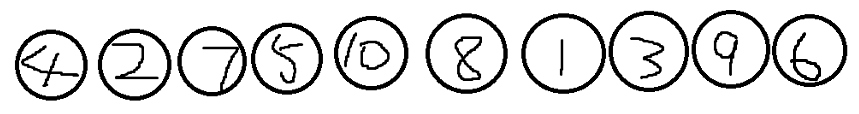 4 2 7 5 10 8 1 3 9 6